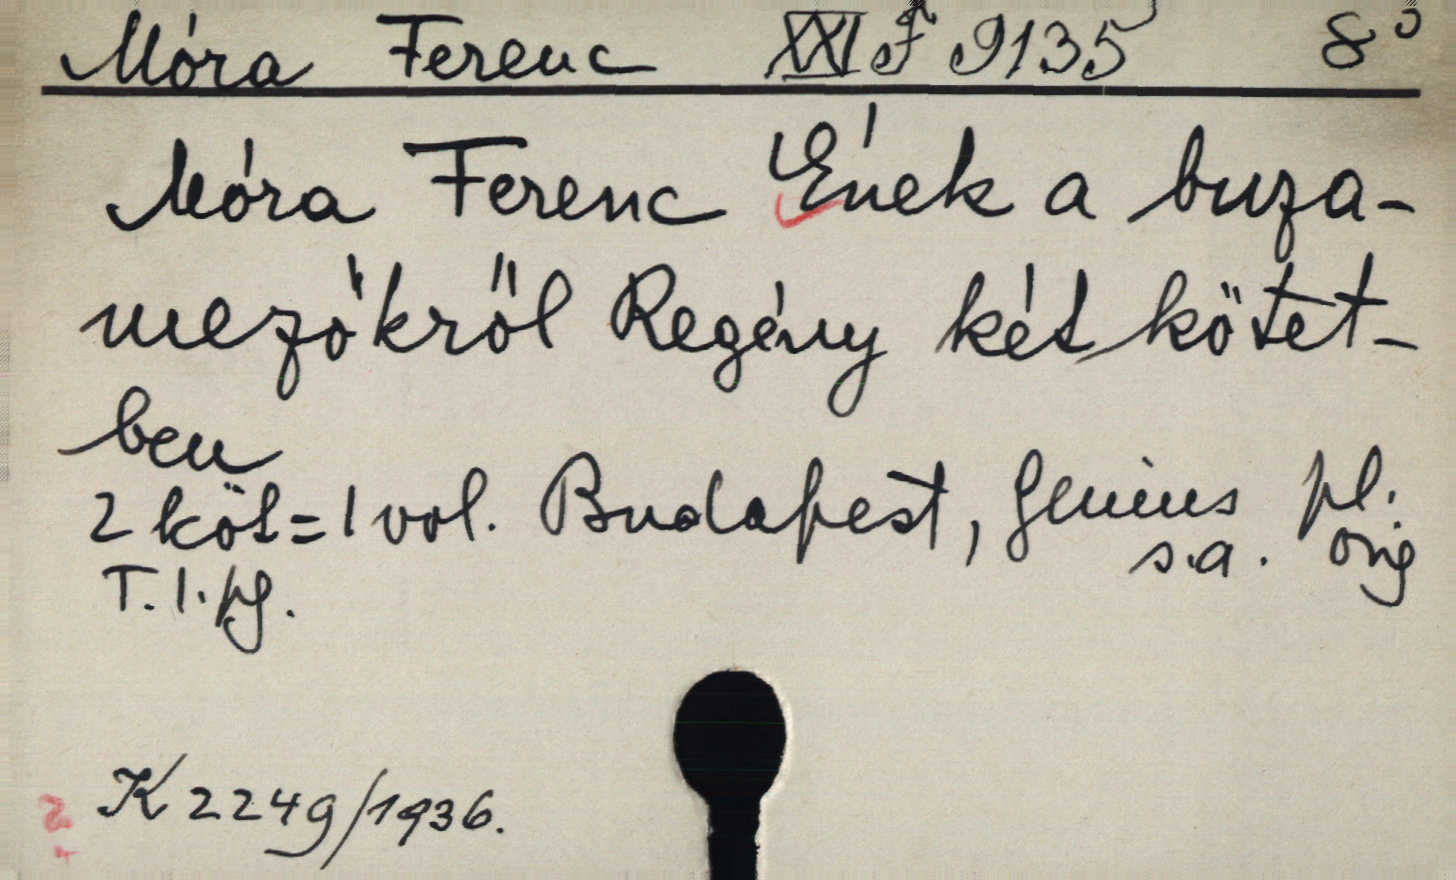 Móra Ferenc XXI F 9135 8°
Móra Ferenc Ének a buza-
mezőkről Regény két kötet-
ben
2 köt=1 vol. Budapest, Genius pl.
s.a. orig
T. 1. pg.
K 2249/1936.